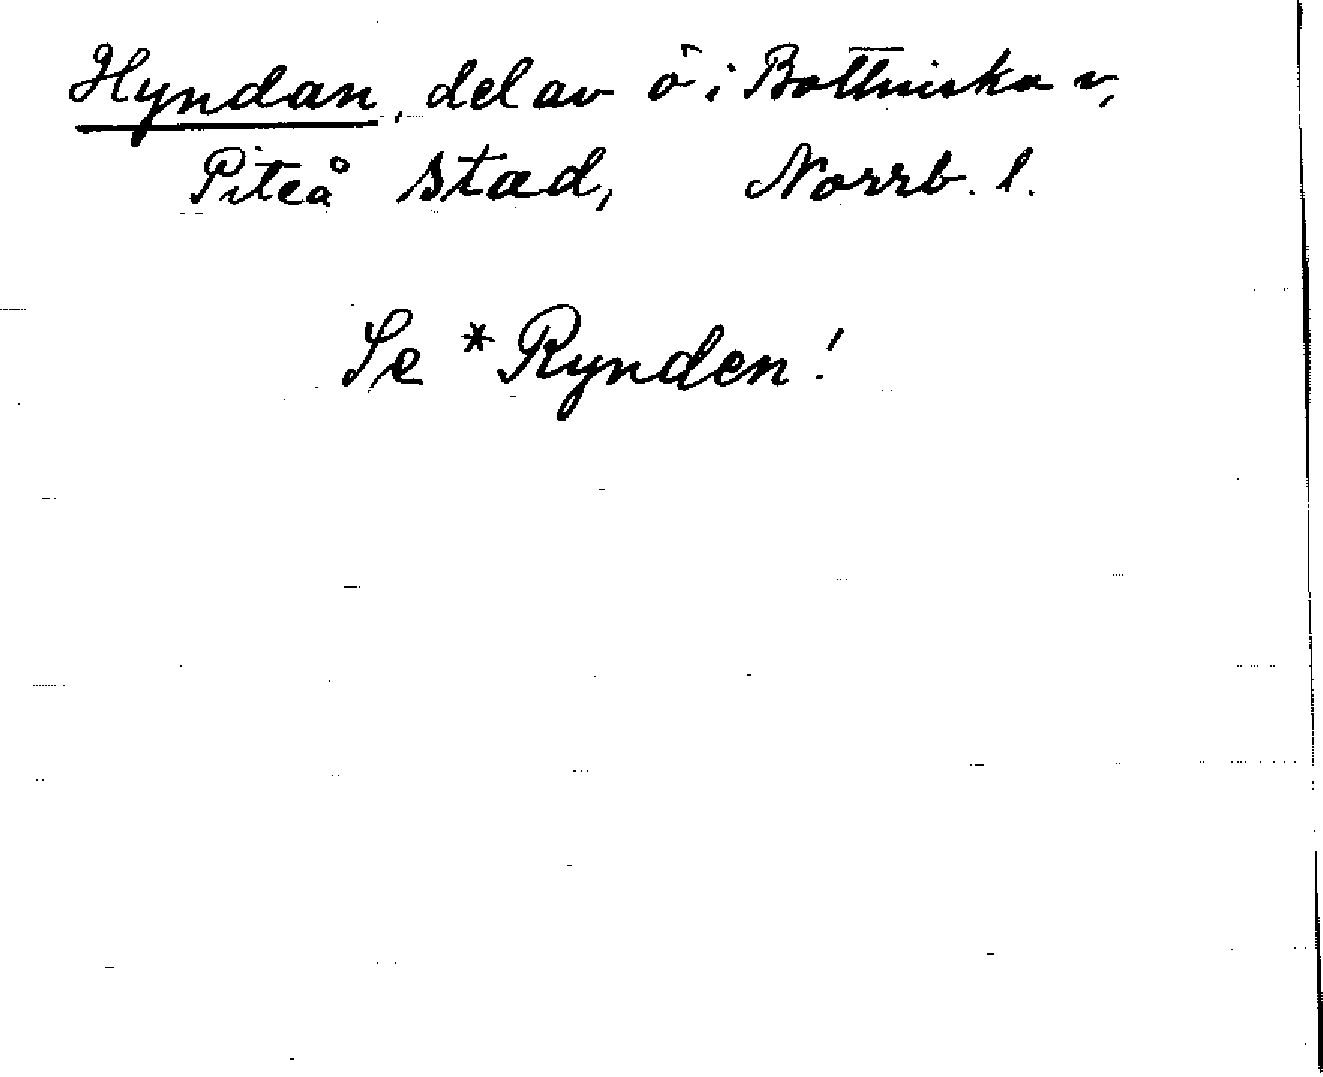 Hyndan, del av ö i Bottniska v,
Piteå stad, Norrb. l.
Se *Rynden!